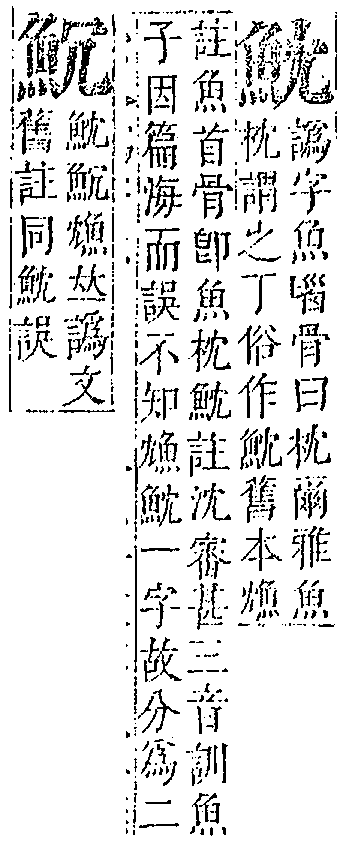 魫
譌字魚腦骨曰枕爾雅魚
枕謂之丁俗作魫舊本
註魚首骨卽魚枕魫註沈審甚三音訓魚
子因篇海而誤不知魫一字故分爲二
魫𠀤譌文
舊註同魫誤